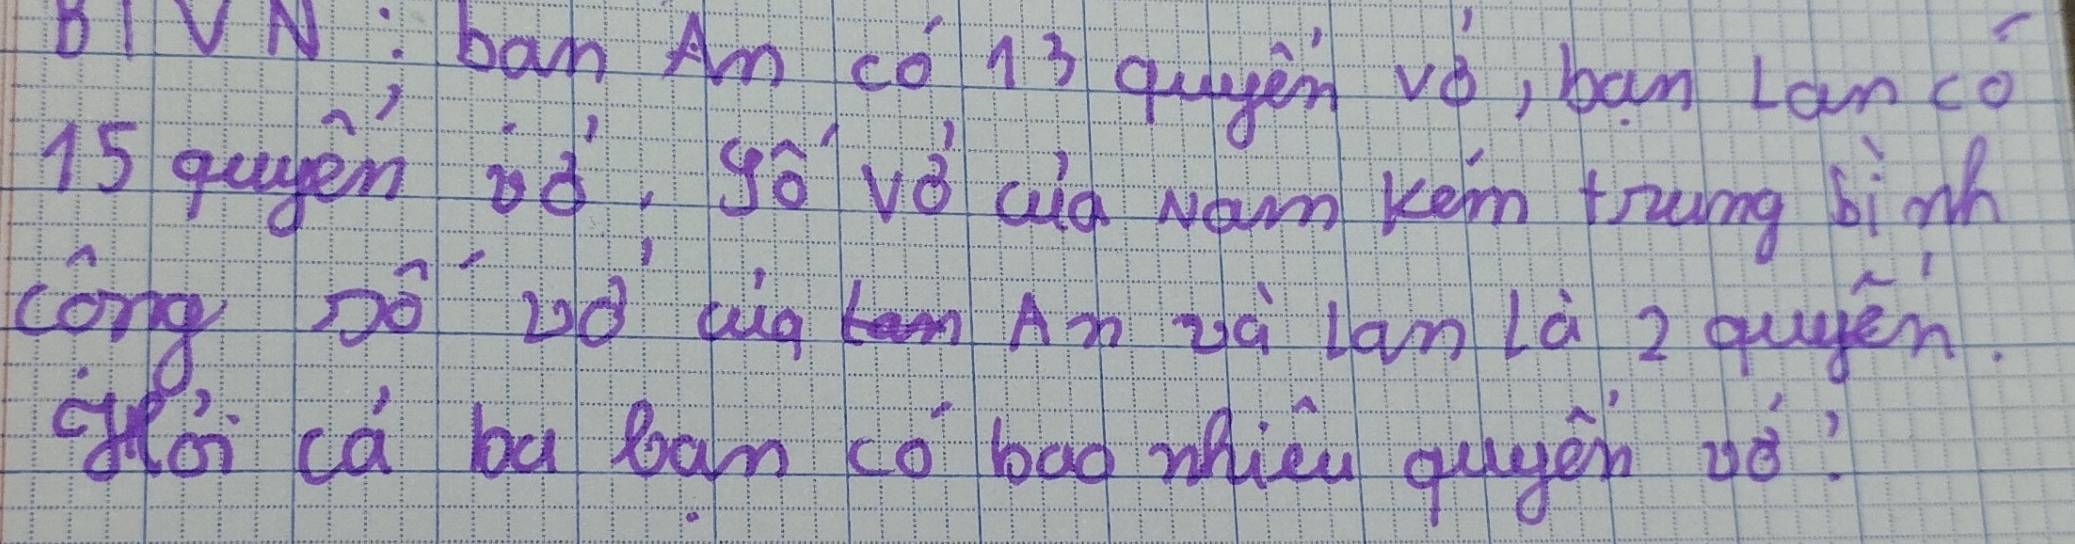 BTVN : bạn An có 13 quyển vở, bạn Lan có
15 quyển vở. Số vở của Nam kém trung bình
cộng số vở của An và Lan là 2 quyển.
Hỏi cả ba bạn có bao nhiêu quyển vở?